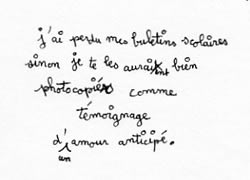 j'ai perdu mes buletins scolaires
sinon je te les aurais bien
photocopiés comme
témoignage
d'un amour anticipé.